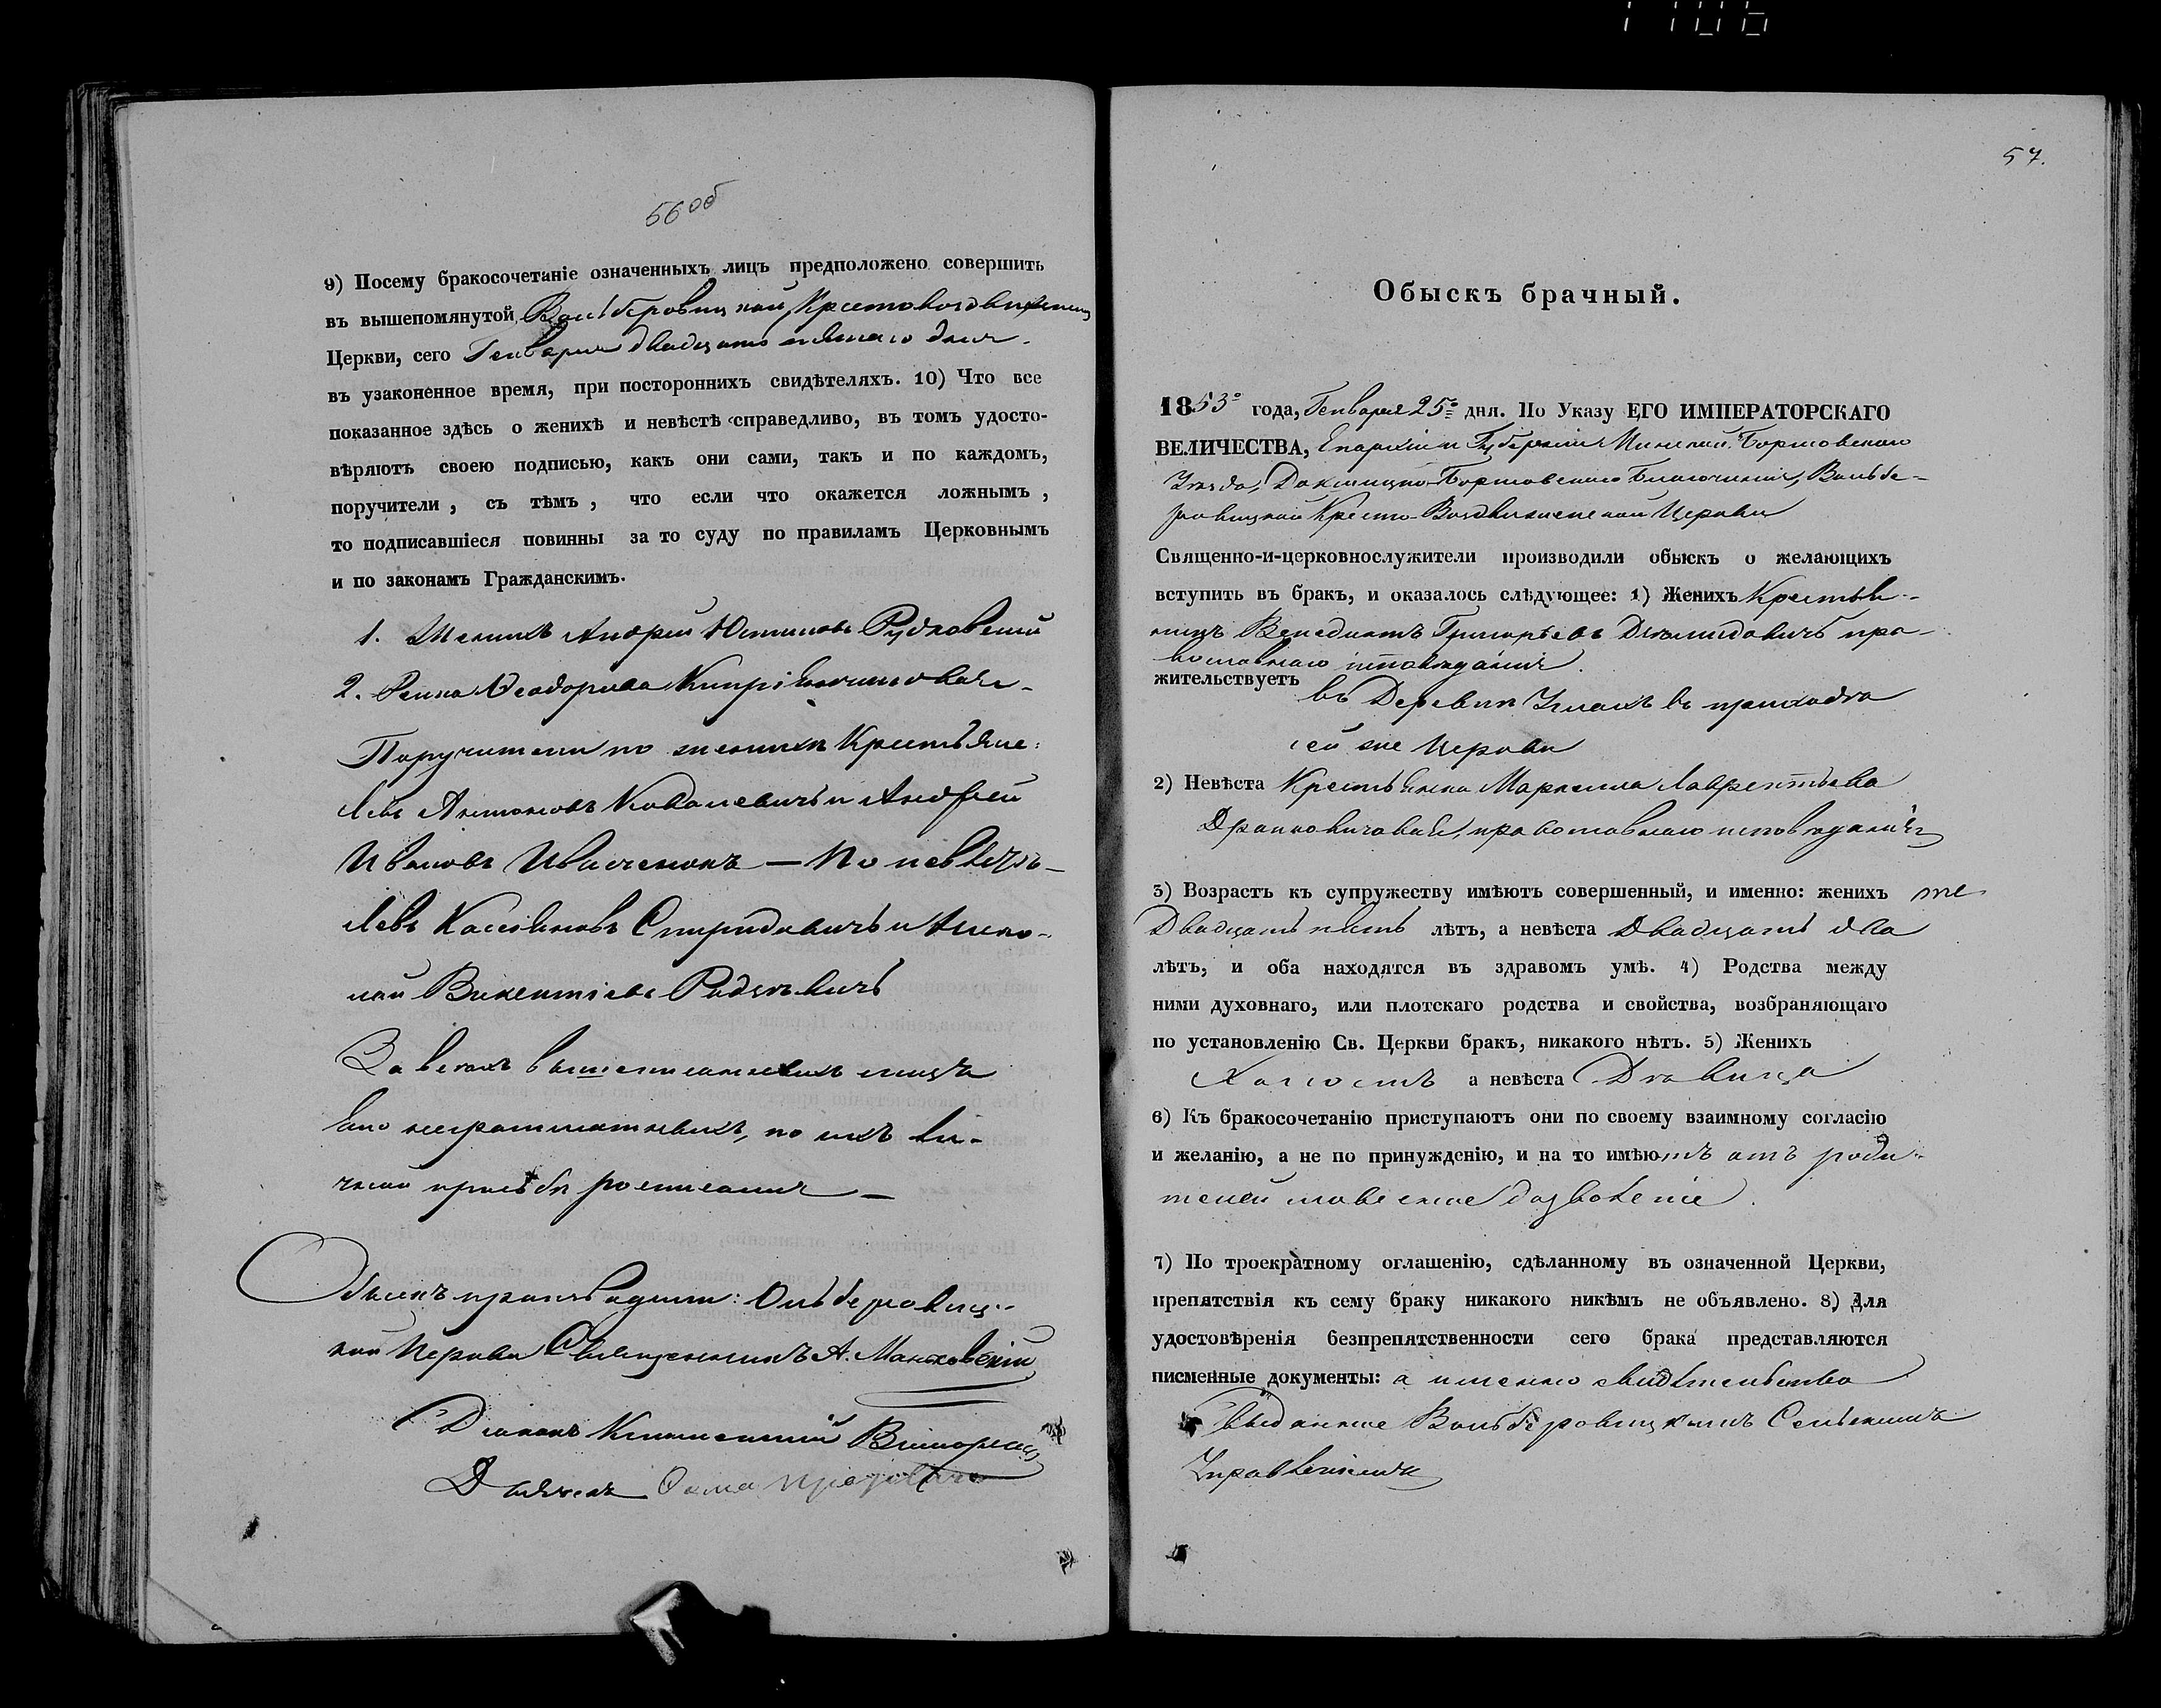 56 об
9) Посему бракосочетаніе означенныхъ лицъ предположено совершить
въ вышепомянутой Вольберовицкой Крестовоздвиженск
Церкви, сего Генваря двадцать пятаго дня.
въ узаконенное время, при постороннихъ свидѣтеляхъ. 10) Что все
показанное здѣсь о женихѣ и невѣстѣ справедливо, въ томъ удосто-
вѣряютъ своею подписью, какъ они сами, такъ и по каждомъ,
поручители, съ тѣмъ, что если что окажется ложнымъ,
то подписавшіеся повинны за то суду по правиламъ Церковнымъ
и по законамъ Гражданскимъ.
1. Женихъ Андрей Юстиновъ Рудковскій
2. Феодорова
Поручители по женихѣ Крестьяне:
Левъ Антоновъ Ковалевичъ и Андрей
Ивановъ — По невѣстѣ —
Левъ Кассіановъ Спиридовичъ и
Викентіевъ Радкевичъ
За всѣхъ вышеписанныхъ лицъ
яко неграмотныхъ, по ихъ ли-
чной прозьбѣ росписался —
Обыскъ производили: Ольберовиц-
кой Церкви Священникъ А. Маньковскій
Диаконъ Климентій
Дьячекъ Фома
1106
57.
Обыскъ брачный.
1853º года, Генваря 25º дня. По Указу ЕГО ИМПЕРАТОРСКАГО
ВЕЛИЧЕСТВА, Епархіи и Губерніи Минской, Борисовскаго
Уѣзда, Докшицко-Борисовскаго Благочинія, Вольбе-
ровицкой Кресто-Воздвиженской Церкви
Священно-и-церковнослужители производили обыскъ о желающихъ
вступить въ бракъ, и оказалось слѣдующее: 1) Женихъ Крестья-
нинъ Венедиктъ Григорьевъ Демидовичъ пра-
вославнаго исповѣданія.
жительствуетъ
въ Деревни въ приходѣ
сей же Церкви
2) Невѣста Крестьянка Маркелла Лаврентьева
православнаго исповѣданія
3) Возрастъ къ супружеству имѣютъ совершенный, и именно: женихъ
Двадцать пять лѣтъ, а невѣста Двадцать два
лѣтъ, и оба находятся въ здравомъ умѣ. 4) Родства между
ними духовнаго, или плотскаго родства и свойства, возбраняющаго
по установленію Св. Церкви бракъ, никакого нѣтъ. 5) Женихъ
Холостъ а невѣста Дѣвица
6) Къ бракосочетанію приступаютъ они по своему взаимному согласію
и желанію, а не по принужденію, и на то имѣютъ отъ роди-
телей словесное дозволеніе.
7) По троекратному оглашенію, сдѣланному въ означенной Церкви,
препятствія къ сему браку никакого никѣмъ не объявлено. 8) Для
удостовѣренія безпрепятственности сего брака представляются
писменные документы: а именно свидѣтельства
выданные Вольберовицкимъ Сельскимъ
Управленіемъ